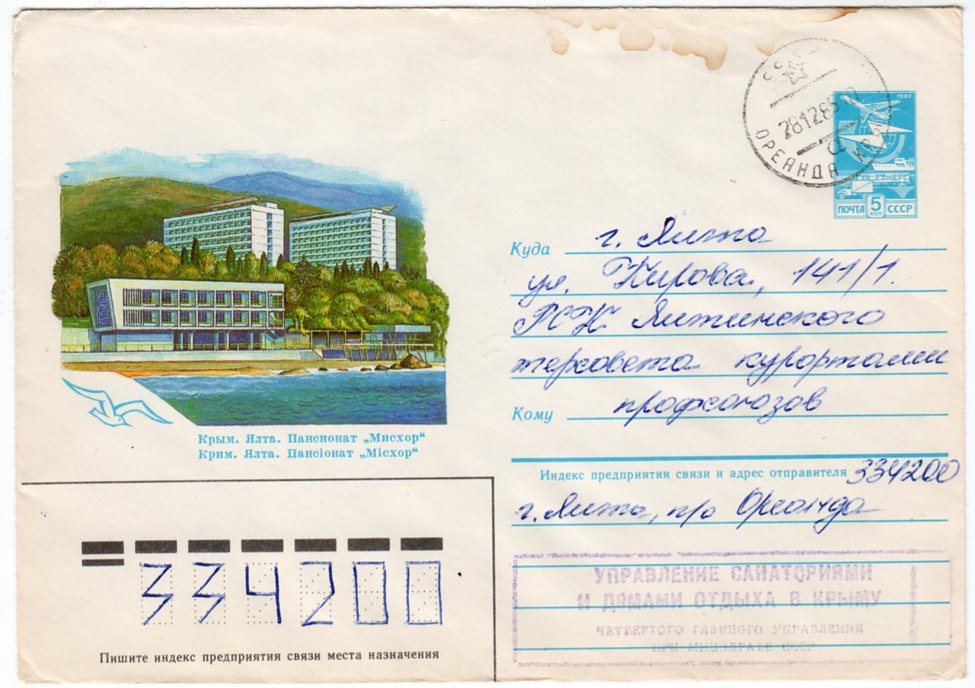 СССР
28128510
ОРЕАНДА
1982
ПОЧТА 5 КОП СССР
Куда г. Ялта
ул. Кирова, 141/1.
Ялтинского
терсовета курортами
Кому профсоюзов
Крым. Ялта. Пансионат „Мисхор“
Крим. Ялта. Пансіонат „Місхор“
Индекс предприятия связи и адрес отправителя 334200
г. Ялта, п/о Ореанда
УПРАВЛЕНИЕ САНАТОРИЯМИ
И ДОМАМИ ОТДЫХА В КРЫМУ
ЧЕТВЕРТОГО ГЛАВНОГО УПРАВЛЕНИЯ
ПРИ МИНЗДРАВЕ СССР
334200
Пишите индекс предприятия связи места назначения